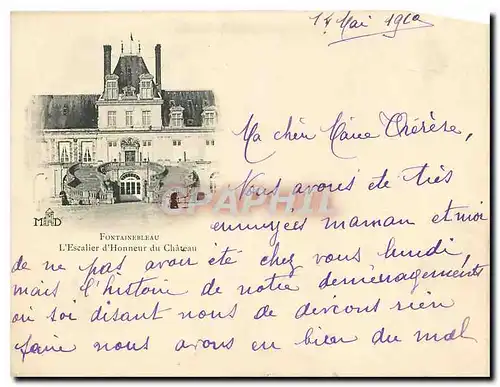 14 Mai 1900
Ma chère Marie Thérèse,
Nous avons été très
ennuyées maman et moi
de ne pas avoir été chez vous lundi,
mais l'histoire de notre déménagements
où soi disant nous de devions rien
faire nous avons eu bien du mal
MTIL D
FONTAINEBLEAU
L'Escalier d'Honneur du Château
CPAPHIL